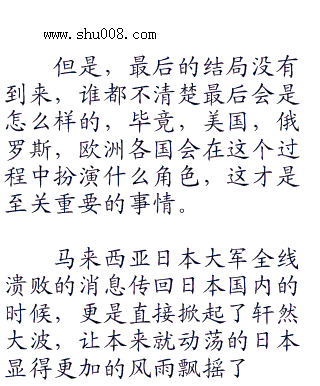 www.shu008.com
但是，最后的结局没有
到来，谁都不清楚最后会是
怎么样的，毕竟，美国，俄
罗斯，欧洲各国会在这个过
程中扮演什么角色，这才是
至关重要的事情。
马来西亚日本大军全线
溃败的消息传回日本国内的
时候，更是直接掀起了轩然
大波，让本来就动荡的日本
显得更加的风雨飘摇了